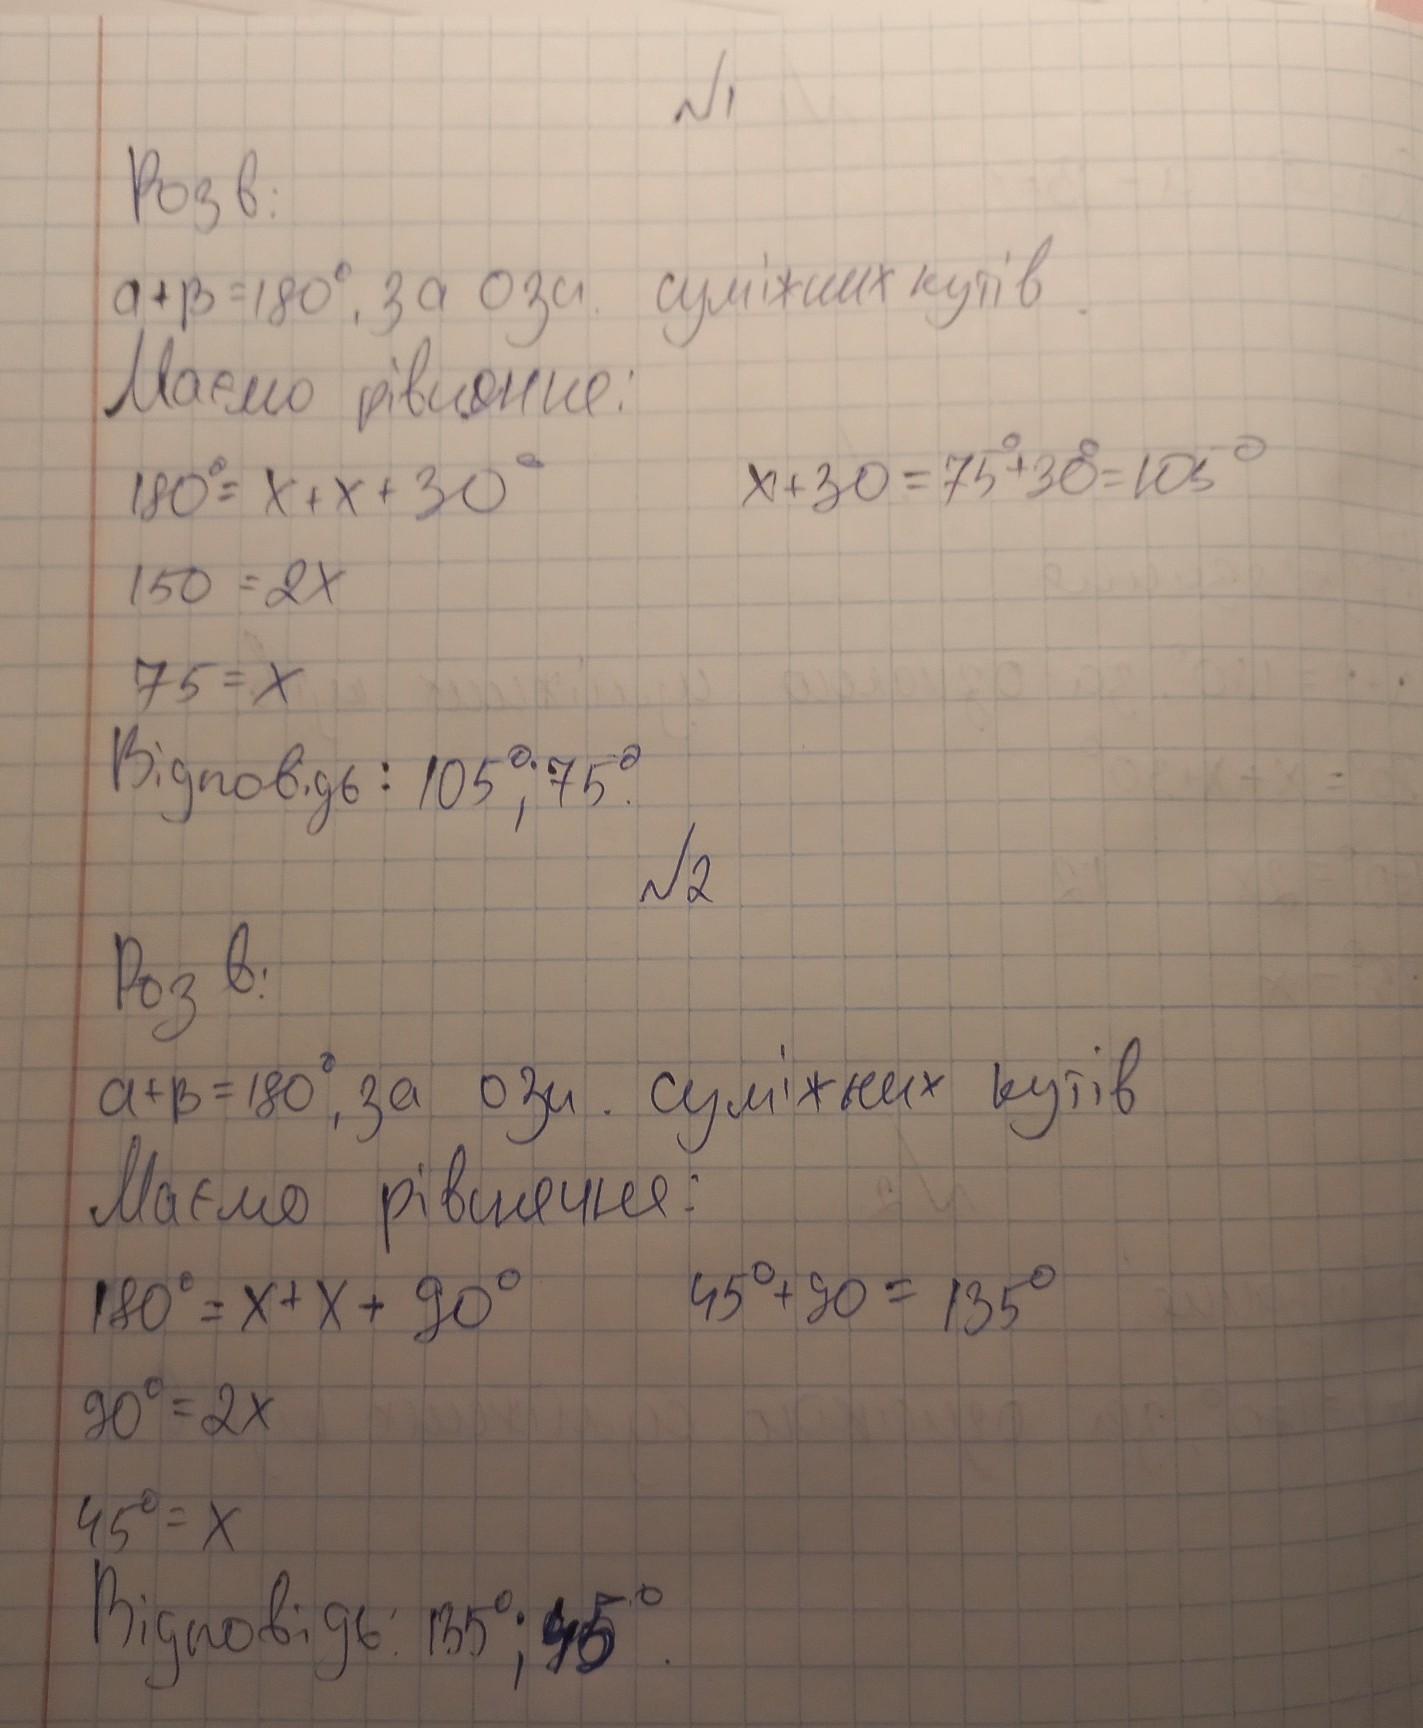 №1
Розв:
α+β=180°, за озн. суміжних кутів.
Маємо рівняння:
180°=x+x+30°
x+30=75°+30°=105°
150=2x
75=x
Відповідь: 105°; 75°.
№2
Розв:
α+β=180°, за озн. суміжних кутів
Маємо рівняння:
180°=x+x+90°
45°+90=135°
90°=2x
45°=x
Відповідь: 135°; 45°.